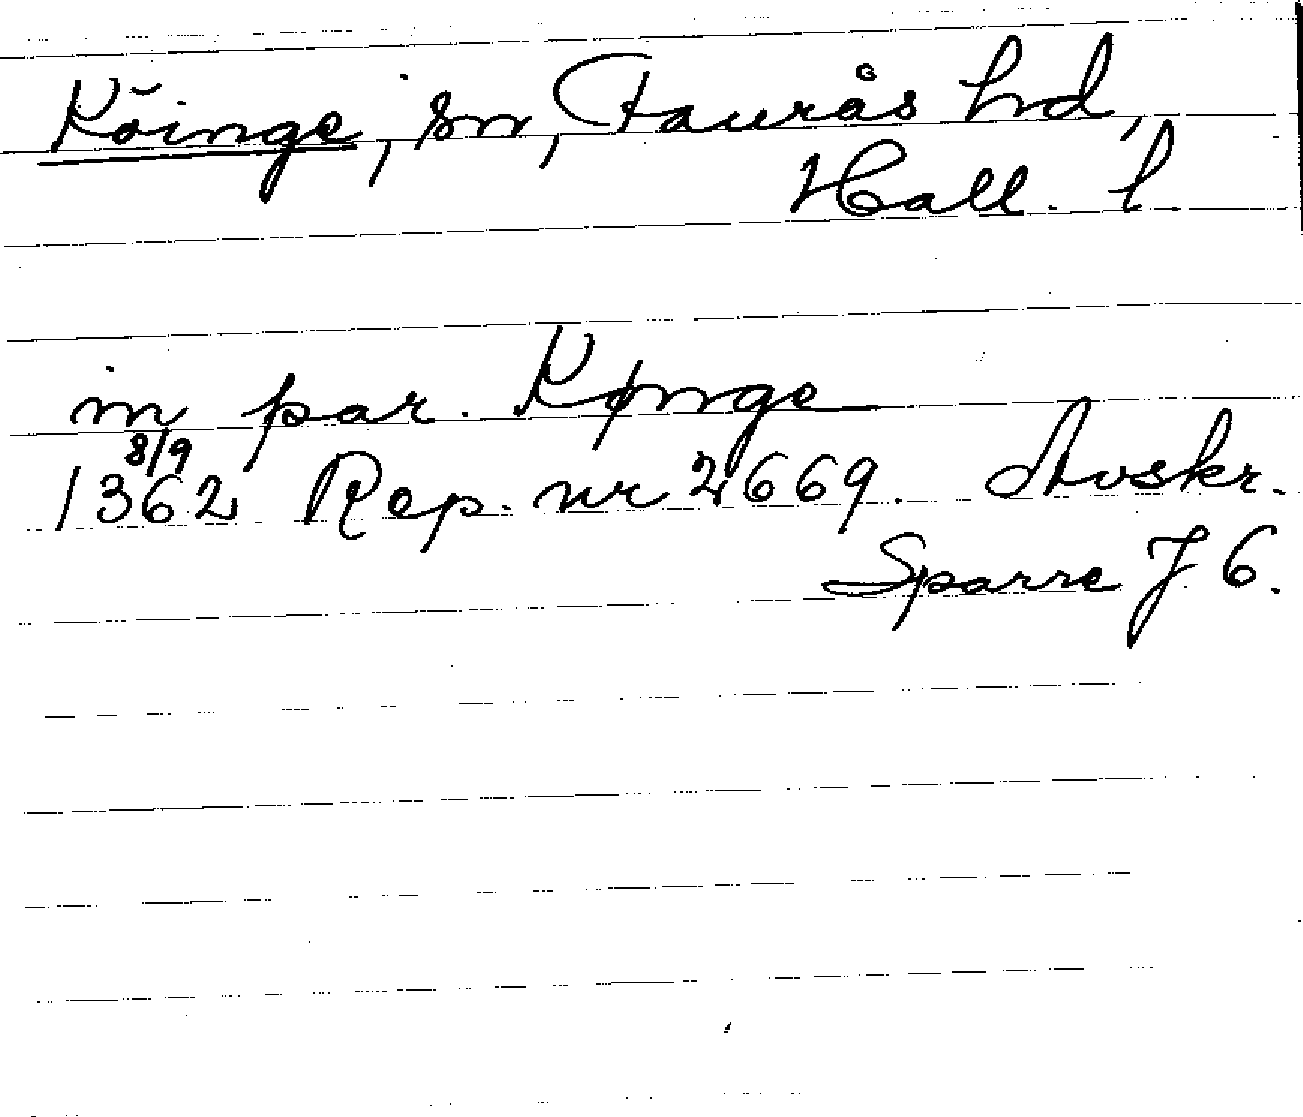 Köinge, sn, Faurås hd,
Hall. l
in par. Kønge
8/9
1362 Rep. nr 2669. Avskr.
Sparre J. 6.